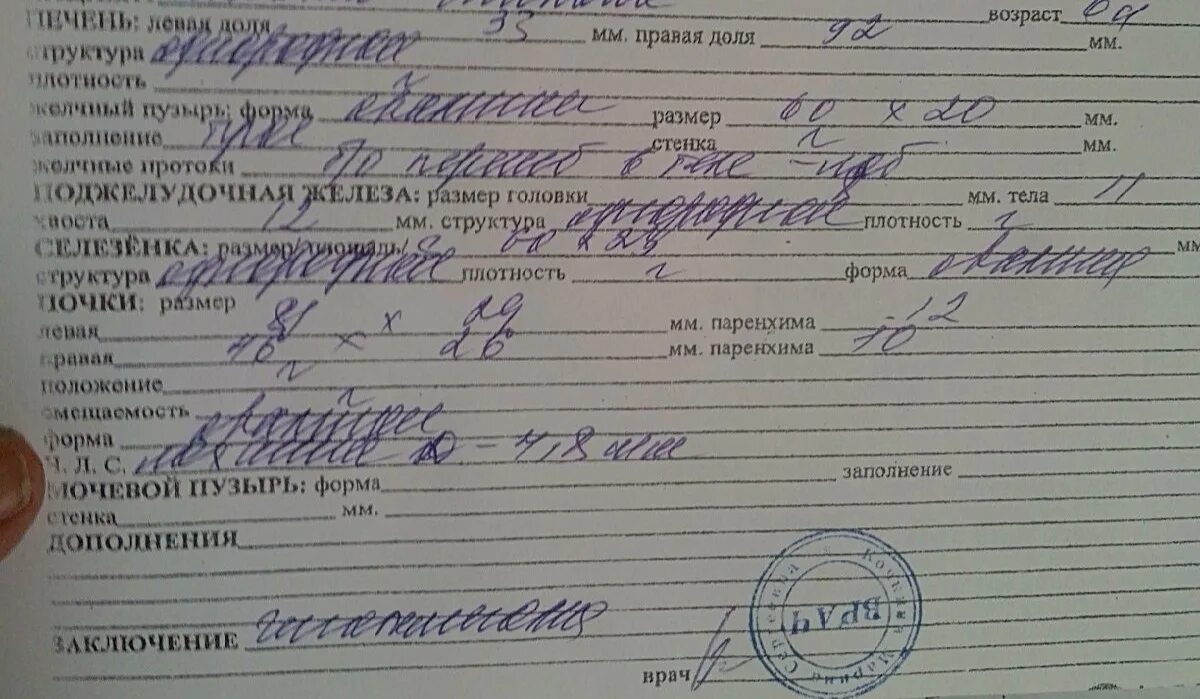 ПЕЧЕНЬ: левая доля 33 мм. правая доля 92 возраст мм.
структура однородная
плотность N
желчный пузырь: форма обычная размер 60 х 20 мм.
заполнение стенка N мм.
желчные протоки б/о перегиб в теле
ПОДЖЕЛУДОЧНАЯ ЖЕЛЕЗА: размер головки мм. тела 11
хвоста 12 мм. структура однородная плотность N
СЕЛЕЗЁНКА: размер/площадь/ 60 х 23 мм
структура однородная плотность N форма обычная
ПОЧКИ: размер
левая 81 х 29 мм. паренхима 12
правая 76 х 26 мм. паренхима 10
положение N
смещаемость N
форма обычная
Ч. Л. С. лоханка D - 4,8 мм
МОЧЕВОЙ ПУЗЫРЬ: форма заполнение
стенка мм.
ДОПОЛНЕНИЯ
ЗАКЛЮЧЕНИЕ
врач
ВРАЧ
Марина Сергеевна